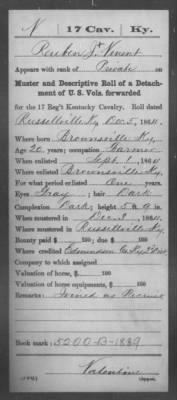 N 17 Cav. Ky.
Reuben J. Vincent
Appears with rank of Private on
Muster and Descriptive Roll of a Detachment
of U. S. Vols. forwarded
for the 17 Reg't Kentucky Cavalry. Roll dated
Russellville Ky Dec 5, 1864.
Where born Brownsville Ky.
Age 20 years; occupation Farmer
When enlisted Sept. 1, 1864
Where enlisted Brownsville Ky.
For what period enlisted One years.
Eyes Gray; hair Dark
Complexion Dark; height 5 ft. 9 in.
When mustered in Dec 3, 1864.
Where mustered in Russellville Ky.
Bounty paid $ 100; due $ 100
Where credited Edmondson Co Ky
Company to which assigned
Valuation of horse, $ 100
Valuation of horse equipments, $ 100
Remarks: Joined as Recruit
Book mark: 5200-B-1889
Valentine
Copyist.